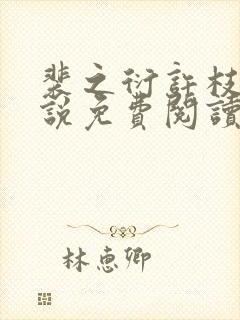 裴之衍許枝
說免費閱讀
林惠卿